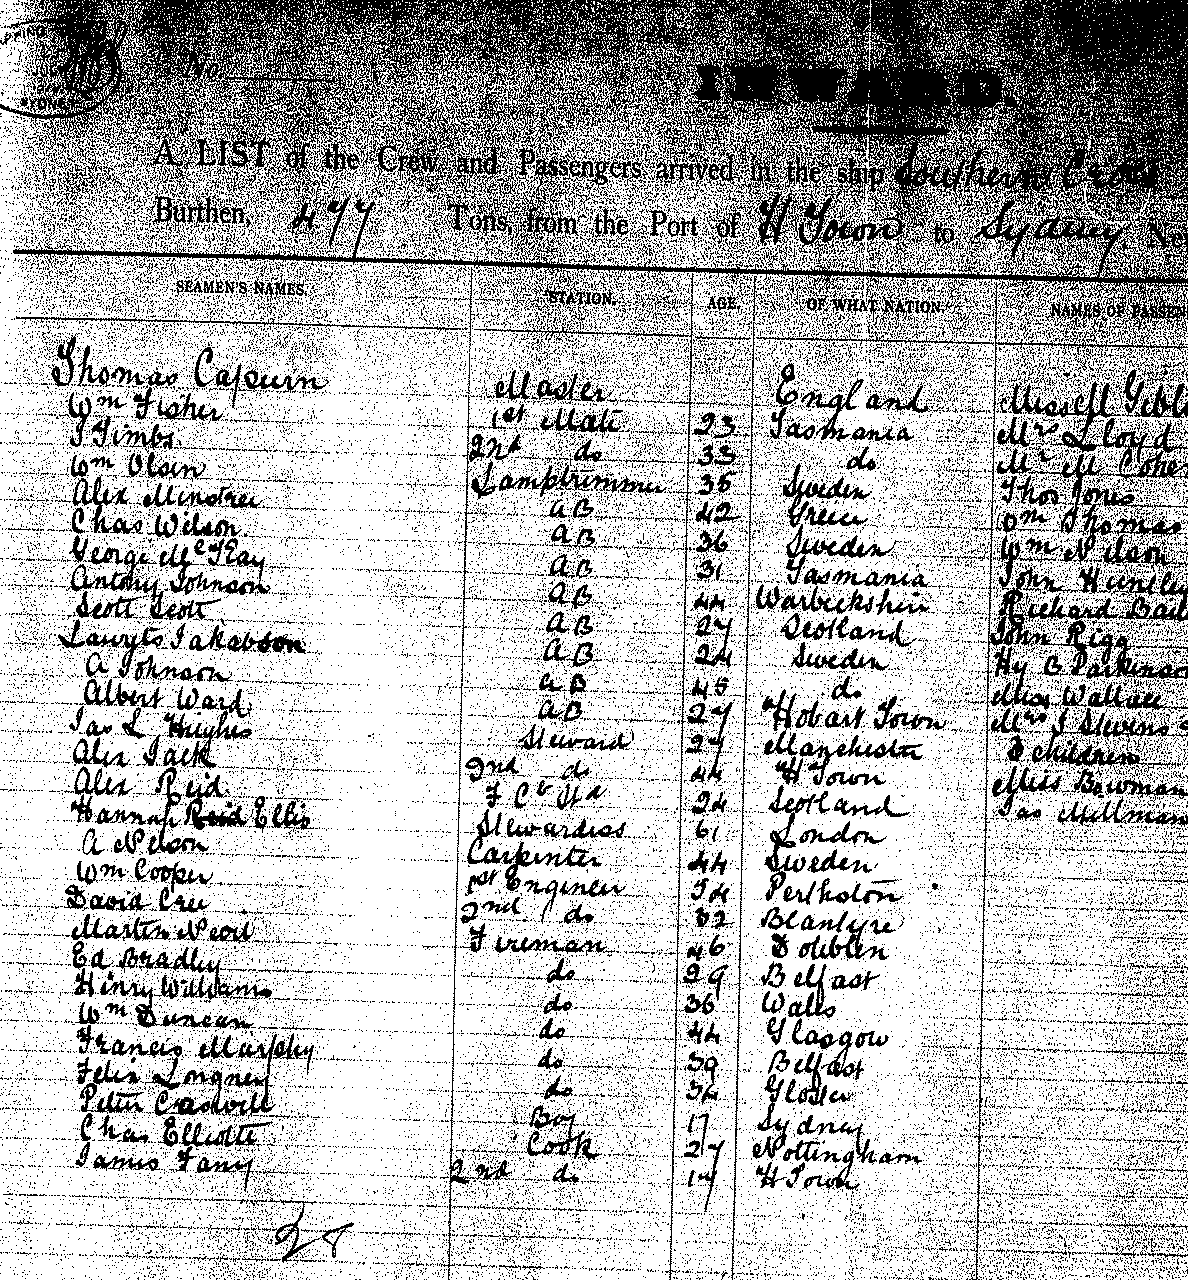 SYDNEY
No.
INWARD.
A LIST of the Crew and Passengers arrived in the ship Southern Cross
Burthen, 477 Tons, from the Port of H Town to Sydney, New
SEAMEN'S NAMES. STATION. AGE. OF WHAT NATION. NAMES OF PASSEN
Thomas Capurn Master England
Wm Fisher 1st Mate 23 Tasmania Mrs Lloyd
J Timbs 2nd do 33 do Mr M Cohe
Wm Olsen Lamptrimmer 35 Sweden Thos Jones
Alex Minstrei AB 42 Greece Wm Thomas
Chas Wilson AB 36 Sweden Wm Nilson
George McKay AB 31 Tasmania John Huntley
Antony Johnson AB 44 Richard Bail
Scott Scott AB 27 Scotland John Rigg
Lawrits Jakobson AB 24 Sweden Hy B Parkinson
A Johnson AB 45 do Miss Wallace
Albert Ward AB 27 Hobart Town Mrs J Stevens
Jas L Hughes Steward 27 Manchester children
Alex Jack 2nd do 44 H Town Miss Bowman
Alex Reid 24 Scotland Jas Millman
Hannah Ellis Stewardess 61 London
A Nelson Carpenter 44 Sweden
Wm Cooper 1st Engineer 54
David Cree 2nd do 32 Blantyre
Martin Fireman 46
Ed Bradley do 29 Belfast
Henry Williams do 36 Wales
Wm Duncan do 44 Glasgow
Francis Murphy do 39 Belfast
Felix Longney do 34 Gloster
Peter Caswell Boy 17 Sydney
Chas Elliotte Cook 27 Nottingham
James Fany 2nd do 17 H Town
28